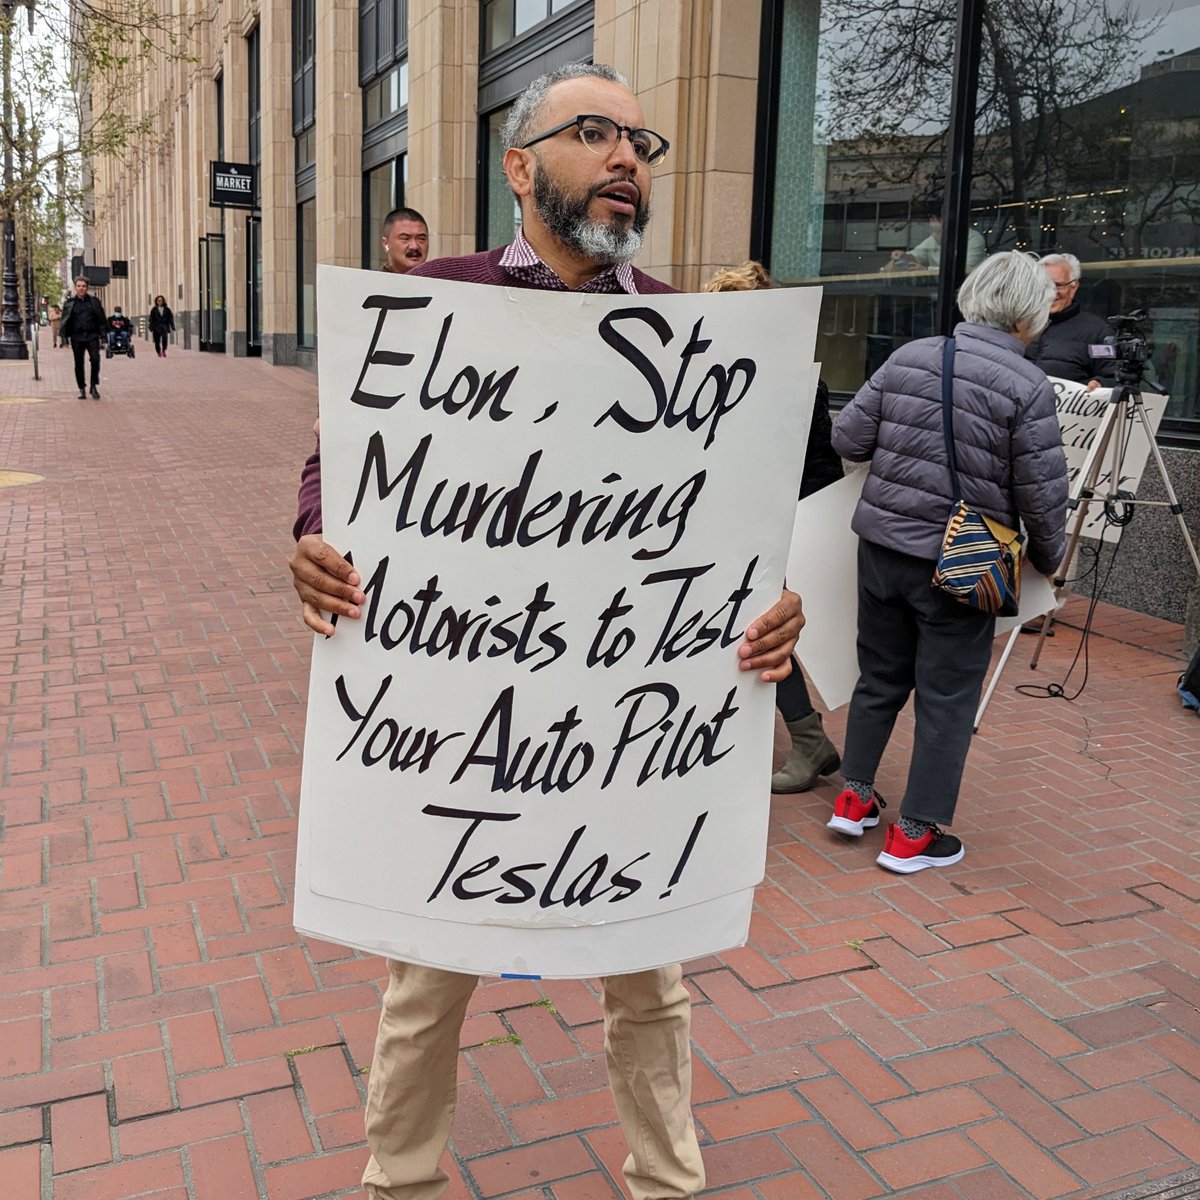 MARKET
Elon, Stop
Murdering
Motorists to Test
Your Auto Pilot
Teslas!